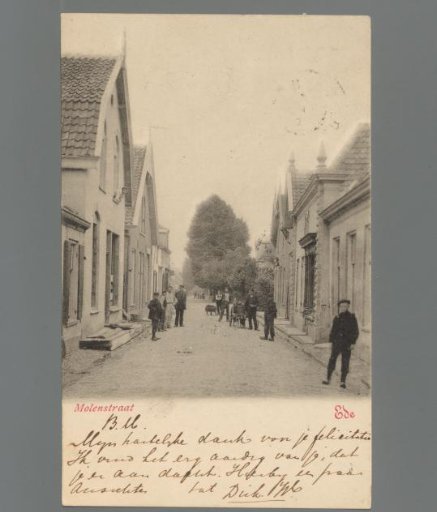 Molenstraat
Ede
B. M.
Mijn hartelijke dank voor je felicitatie
Ik vind het erg aardig van je, dat
je er aan dacht. Hierbij een paar
Ansichten tot